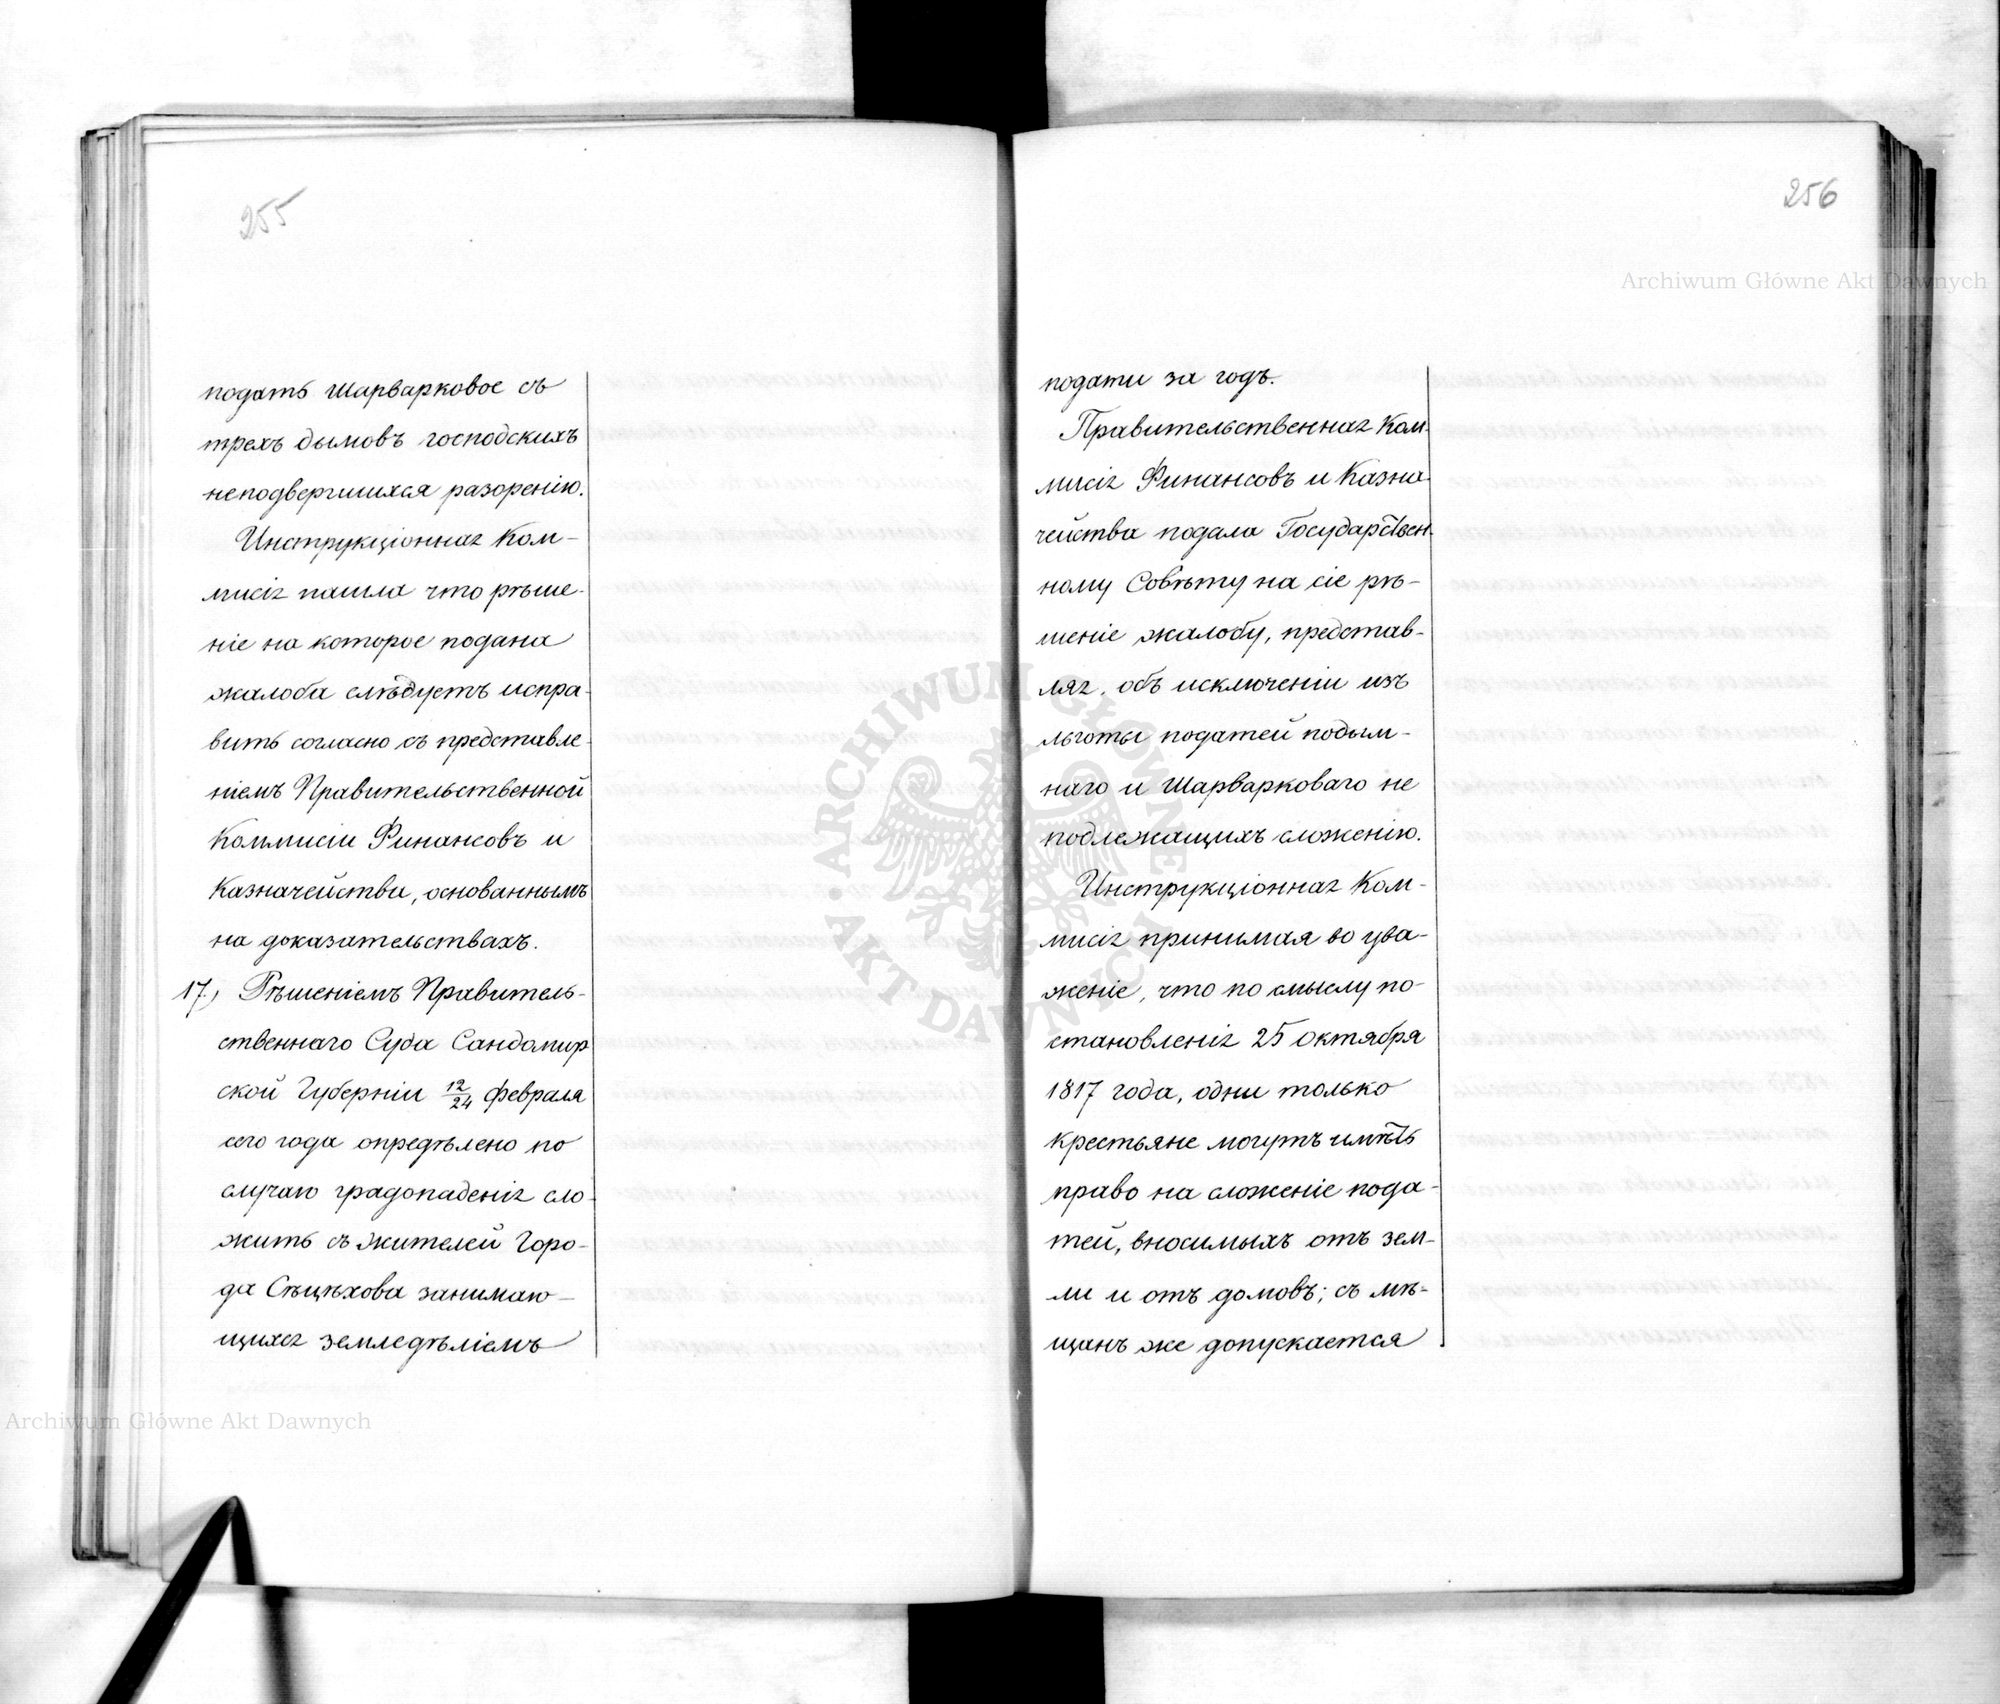 255
подать шарварковое съ
трехъ дымовъ господскихъ
неподвергшихся разоренію.
Инструкціонная Ком-
мисія нашла что рѣше-
ніе на которое подана
жалоба слѣдуетъ испра-
вить согласно съ представле-
ніемъ Правительственной
Коммисіи Финансовъ и
Казначейства, основаннымъ
на доказательствахъ.
17.) Рѣшеніемъ Правитель-
ственнаго Суда Сандомир
ской Губерніи 12/24 февраля
сего года опредѣлено по
случаю градопаденія сло-
жить съ жителей Горо-
да Сѣцѣхова занимаю-
щихся земледѣліемъ
256
подати за годъ.
Правительственная Ком-
мисія Финансовъ и Казна-
чейства подала Государствен-
ному Совѣту на сіе рѣ-
шеніе жалобу, представ-
ляя объ исключеніи изъ
льготы податей подым-
наго и шарварковаго не
подлежащихъ сложенію.
Инструкціонная Ком-
мисія принимая во ува-
женіе, что по смыслу по-
становленія 25 октября
1817 года, одни только
крестьяне могутъ имѣть
право на сложеніе пода-
тей, вносимыхъ отъ зем-
ли и отъ домовъ; съ мѣ-
щанъ же допускается
Archiwum Główne Akt Dawnych
Archiwum Główne Akt Dawnych
ARCHIWUM GŁÓWNE AKT DAWNYCH